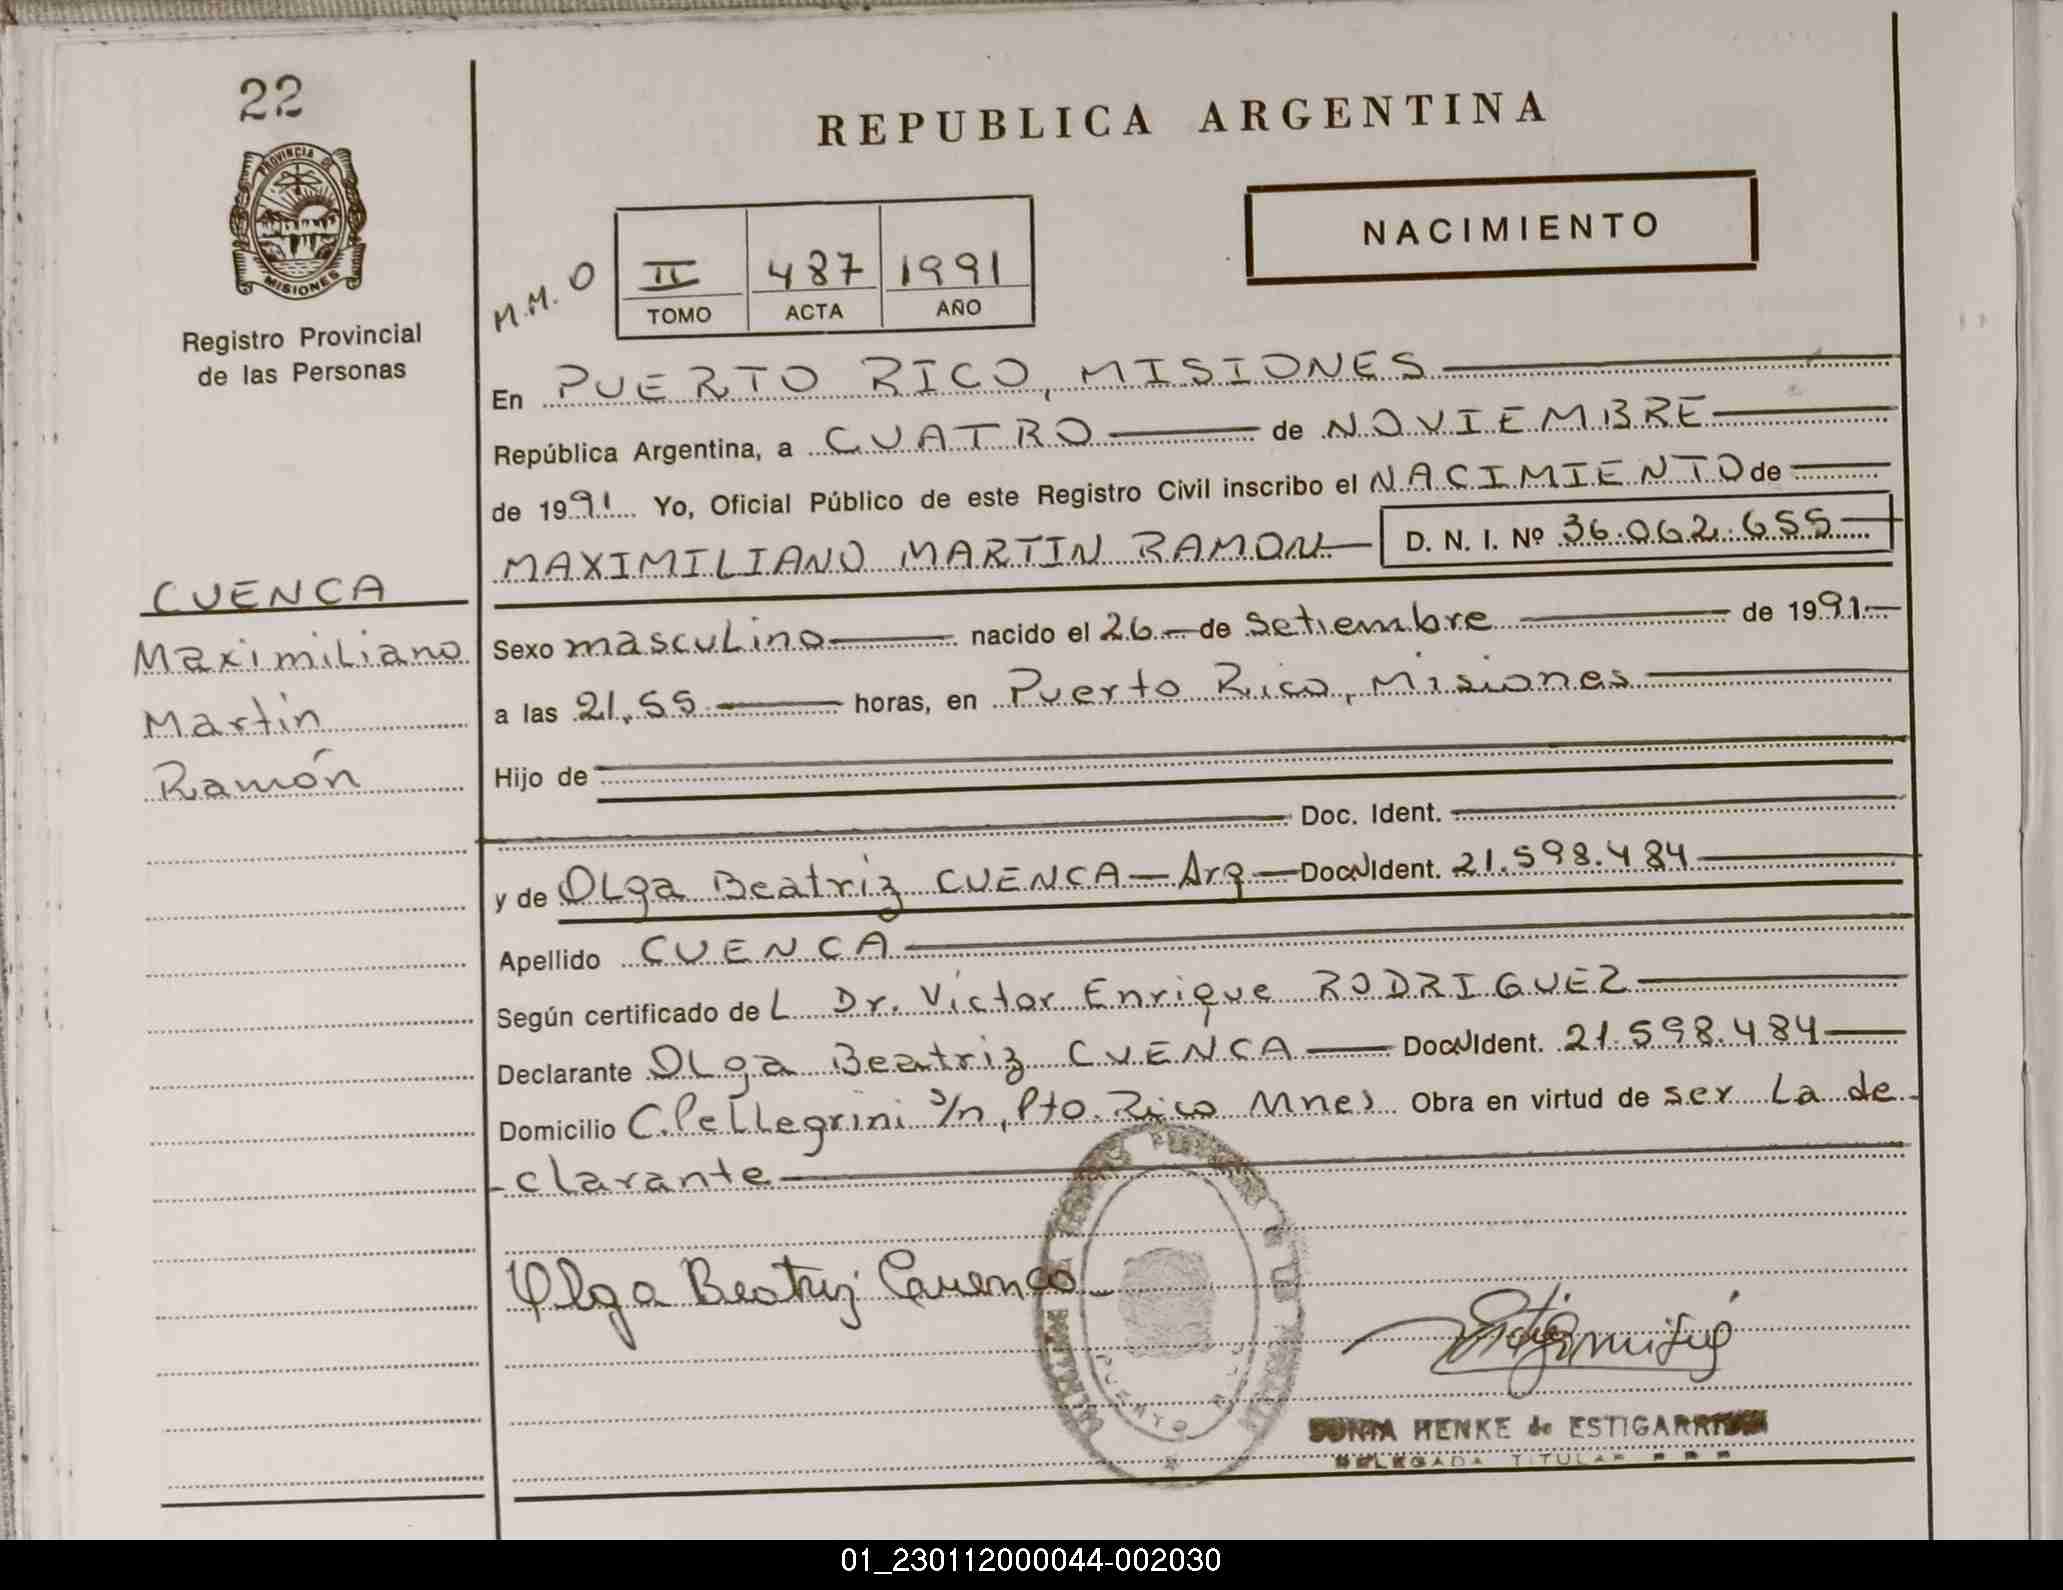 22
PROVINCIA DE
MISIONES
Registro Provincial
de las Personas
REPUBLICA ARGENTINA
NACIMIENTO
M.M. O
II 487 1991
TOMO ACTA AÑO
En PUERTO RICO, MISIONES
República Argentina, a CUATRO de NOVIEMBRE
de 1991 Yo, Oficial Público de este Registro Civil inscribo el NACIMIENTO de
MAXIMILIANO MARTIN RAMON D. N. I. Nº 36.062.655
CUENCA
Maximiliano
Martín
Ramón
Sexo masculino nacido el 26 de Setiembre de 1991
a las 21,55 horas, en Puerto Rico, Misiones
Hijo de
Doc. Ident.
y de Olga Beatriz CUENCA - Arg - Doc. N Ident. 21.598.484
Apellido CUENCA
Según certificado de L Dr. Víctor Enrique RODRIGUEZ
Declarante Olga Beatriz CUENCA Doc. N Ident. 21.598.484
Domicilio C. Pellegrini s/n, Pto. Rico Mnes Obra en virtud de ser la de-
-clarante
Olga Beatriz Cuenca
PUERTO RICO
HENKE de ESTIGARRIBIA
DELEGADA TITULAR
01_230112000044-002030